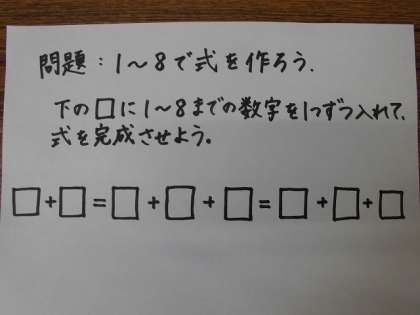 問題：1～8で式を作ろう.
下の□に1～8までの数字を1つずつ入れて,
式を完成させよう。
□+□=□+□+□=□+□+□